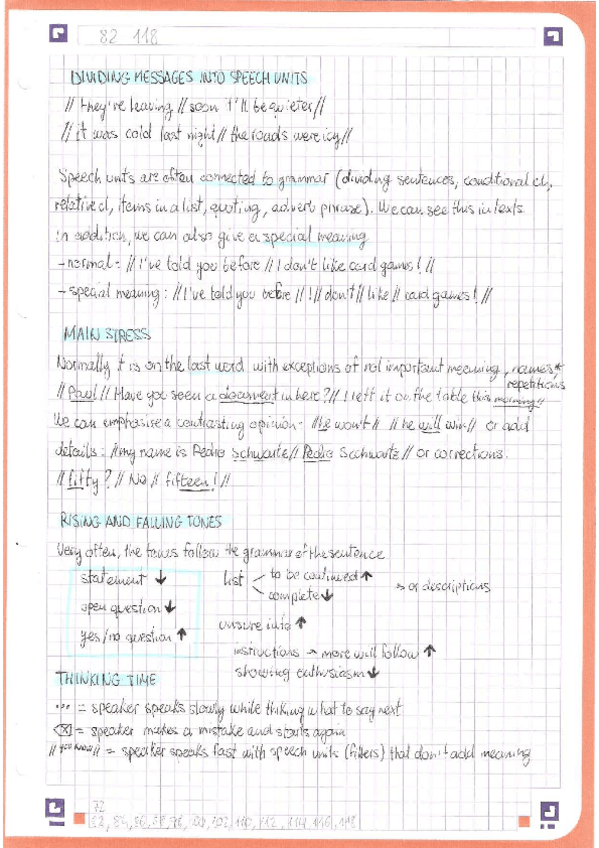 82 118
DIVIDING MESSAGES INTO SPEECH UNITS
// they're leaving // soon I'll be quieter //
// it was cold last night // the roads were icy //
Speech units are often connected to grammar (dividing sentences, conditional cl,
relative cl, items in a list, quoting, advert phrase). We can see this in texts.
In addition, we can also give a special meaning
- normal: // I've told you before // I don't like card games! //
- special meaning: // I've told you before // I // don't // like // card games! //
MAIN STRESS
Normally it is on the last word with exceptions of not important meaning, names,
repetitions
// Paul // Have you seen a document in here? // I left it on the table this morning //
We can emphasise a contrasting opinion: // He won't // he will win // or add
details: // my name is Pedro Schwartz // Pedro Scchwartz // or corrections.
// fifty? // No, // fifteen! //
RISING AND FALLING TONES
Very often, the tones follow the grammar of the sentence
statement ↓
open question ↓
yes/no question ↑
list
to be continued ↑
complete ↓
→ or descriptions
unsure info ↑
instructions → more will follow ↑
showing enthusiasm ↓
THINKING TIME
... = speaker speaks slowly while thinking what to say next
⌫ = speaker makes a mistake and starts again
// you know // = speaker speaks fast with speech units (fillers) that don't add meaning
72